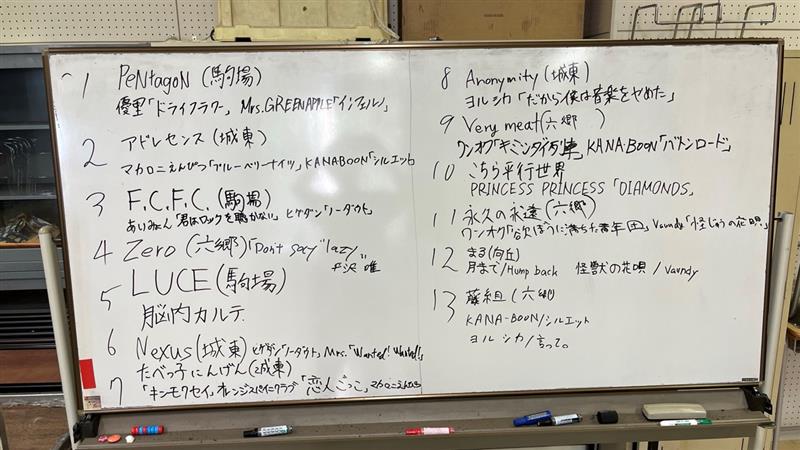 1 PeNtagoN (駒場)
優里「ドライフラワー」 Mrs.GREENAPPLE「インフェルノ」
2 アドレセンス (城東)
マカロニえんぴつ「ブルーベリーナイツ」 KANABOON「シルエット」
3 F.C.F.C. (駒場)
あいみょん「君はロックを聴かない」 ヒゲダン「ノーダウト」
4 Zero (六郷)「Don't say "lazy"
平沢 唯
5 LUCE (駒場)
脳内カルテ
6 Nexus (城東) ヒゲダン「ノーダウト」 Mrs.「Wanted! Wanted!」
たべっ子にんげん (城東)
7 「キンモクセイ」オレンジスパイニクラブ 「恋人ごっこ」マカロニえんぴつ
8 Anonymity (城東)
ヨルシカ「だから僕は音楽をやめた」
9 Very meat (六郷 )
ワンオク「キミシダイ列車」 KANA-BOON「バトンロード」
10 こちら平行世界
PRINCESS PRINCESS「DIAMONDS」
11 永久の永遠 (六郷)
ワンオク「欲望に満ちた青年団」 Vaundy「怪じゅうの花唄」
12 まる (向丘)
月まで/Hump back 怪獣の花唄 / Vaundy
13 藤組 (六郷
KANA-BOON/シルエット
ヨルシカ/言って。